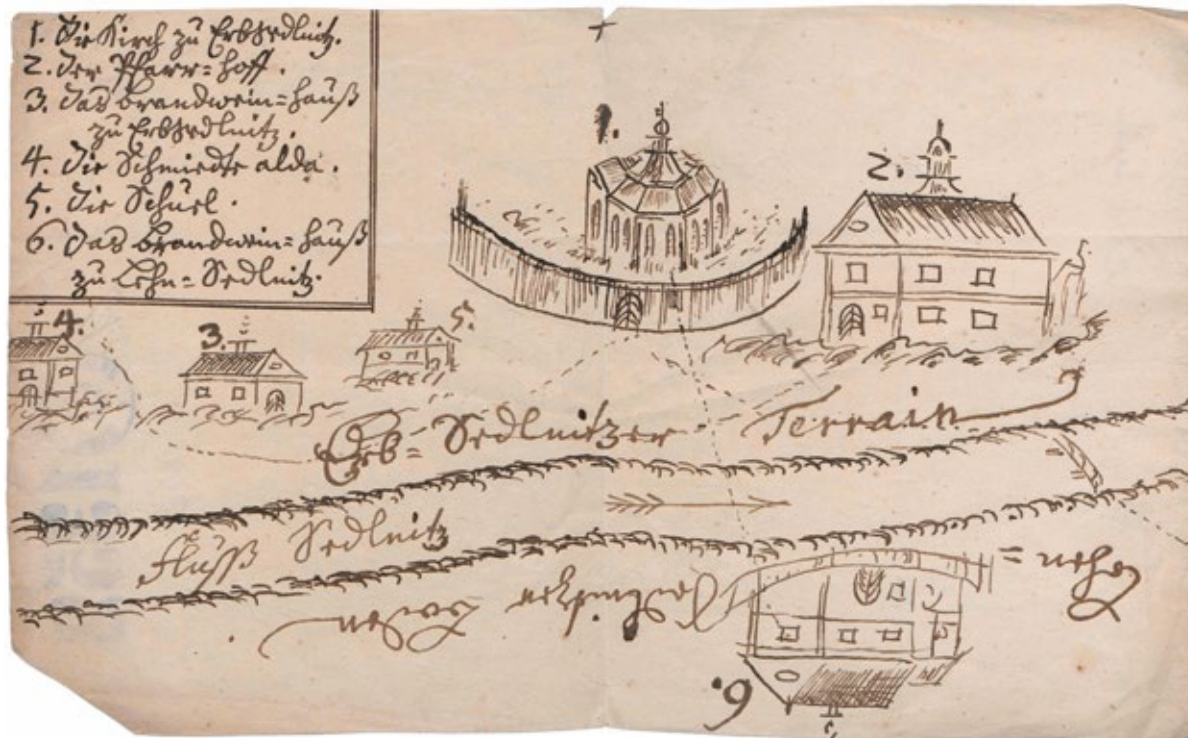 1. Die Kirch zu Erbsedlnitz.
2. Der Pfarr=hoff.
3. Das brandwein=hauß
zu Erbsedlnitz.
4. Die Schmiedte alda.
5. Die Schuel.
6. Das brandwein=hauß
zu Lehn=Sedlnitz.
1.
2.
4.
3.
5.
Erb=Sedlnitzer Terrain
Fluß Sedlnitz
Lehn=
Sedlnitzer
6.